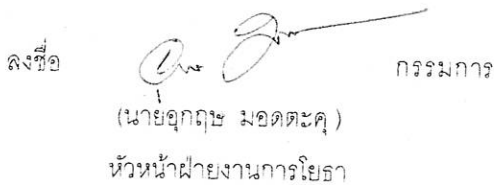 ลงชื่อ กรรมการ
(นายอุกฤษ มอดตะคุ)
หัวหน้าฝ่ายงานการโยธา